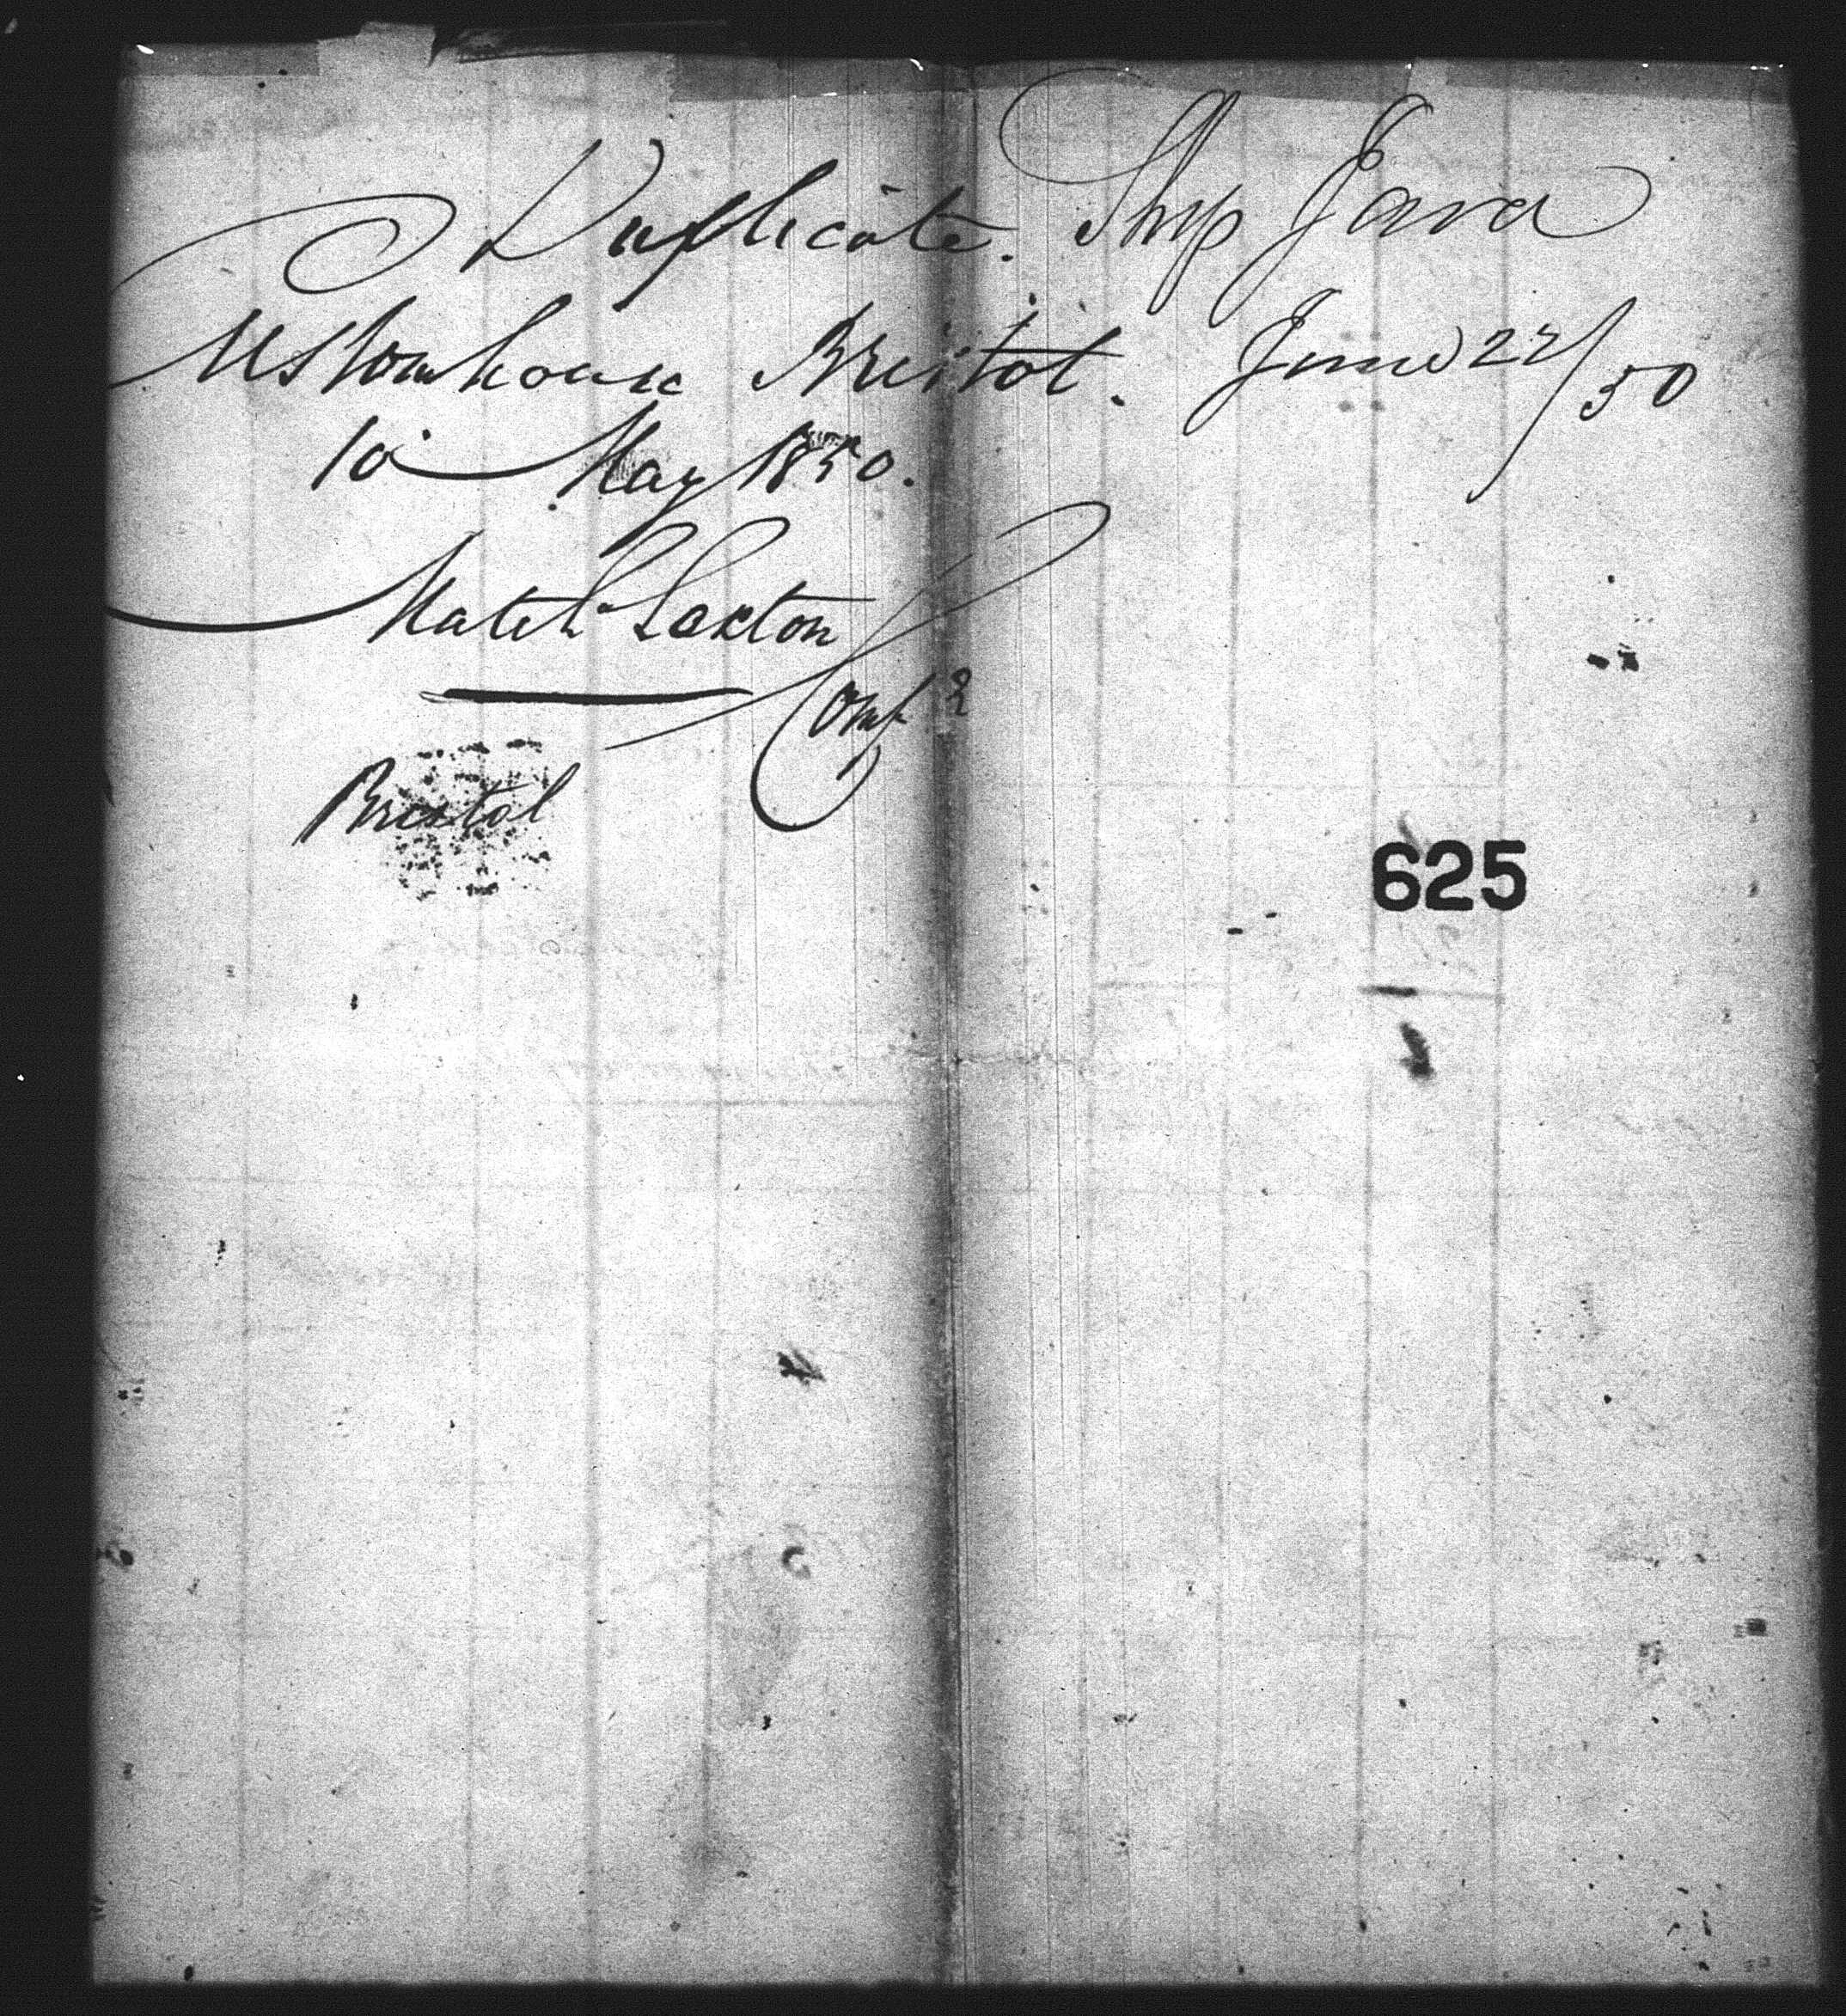 Duplicate. Ship Java
Customhouse Bristol. June 22/50
10 May 1850.
Sexton
Bristol
625